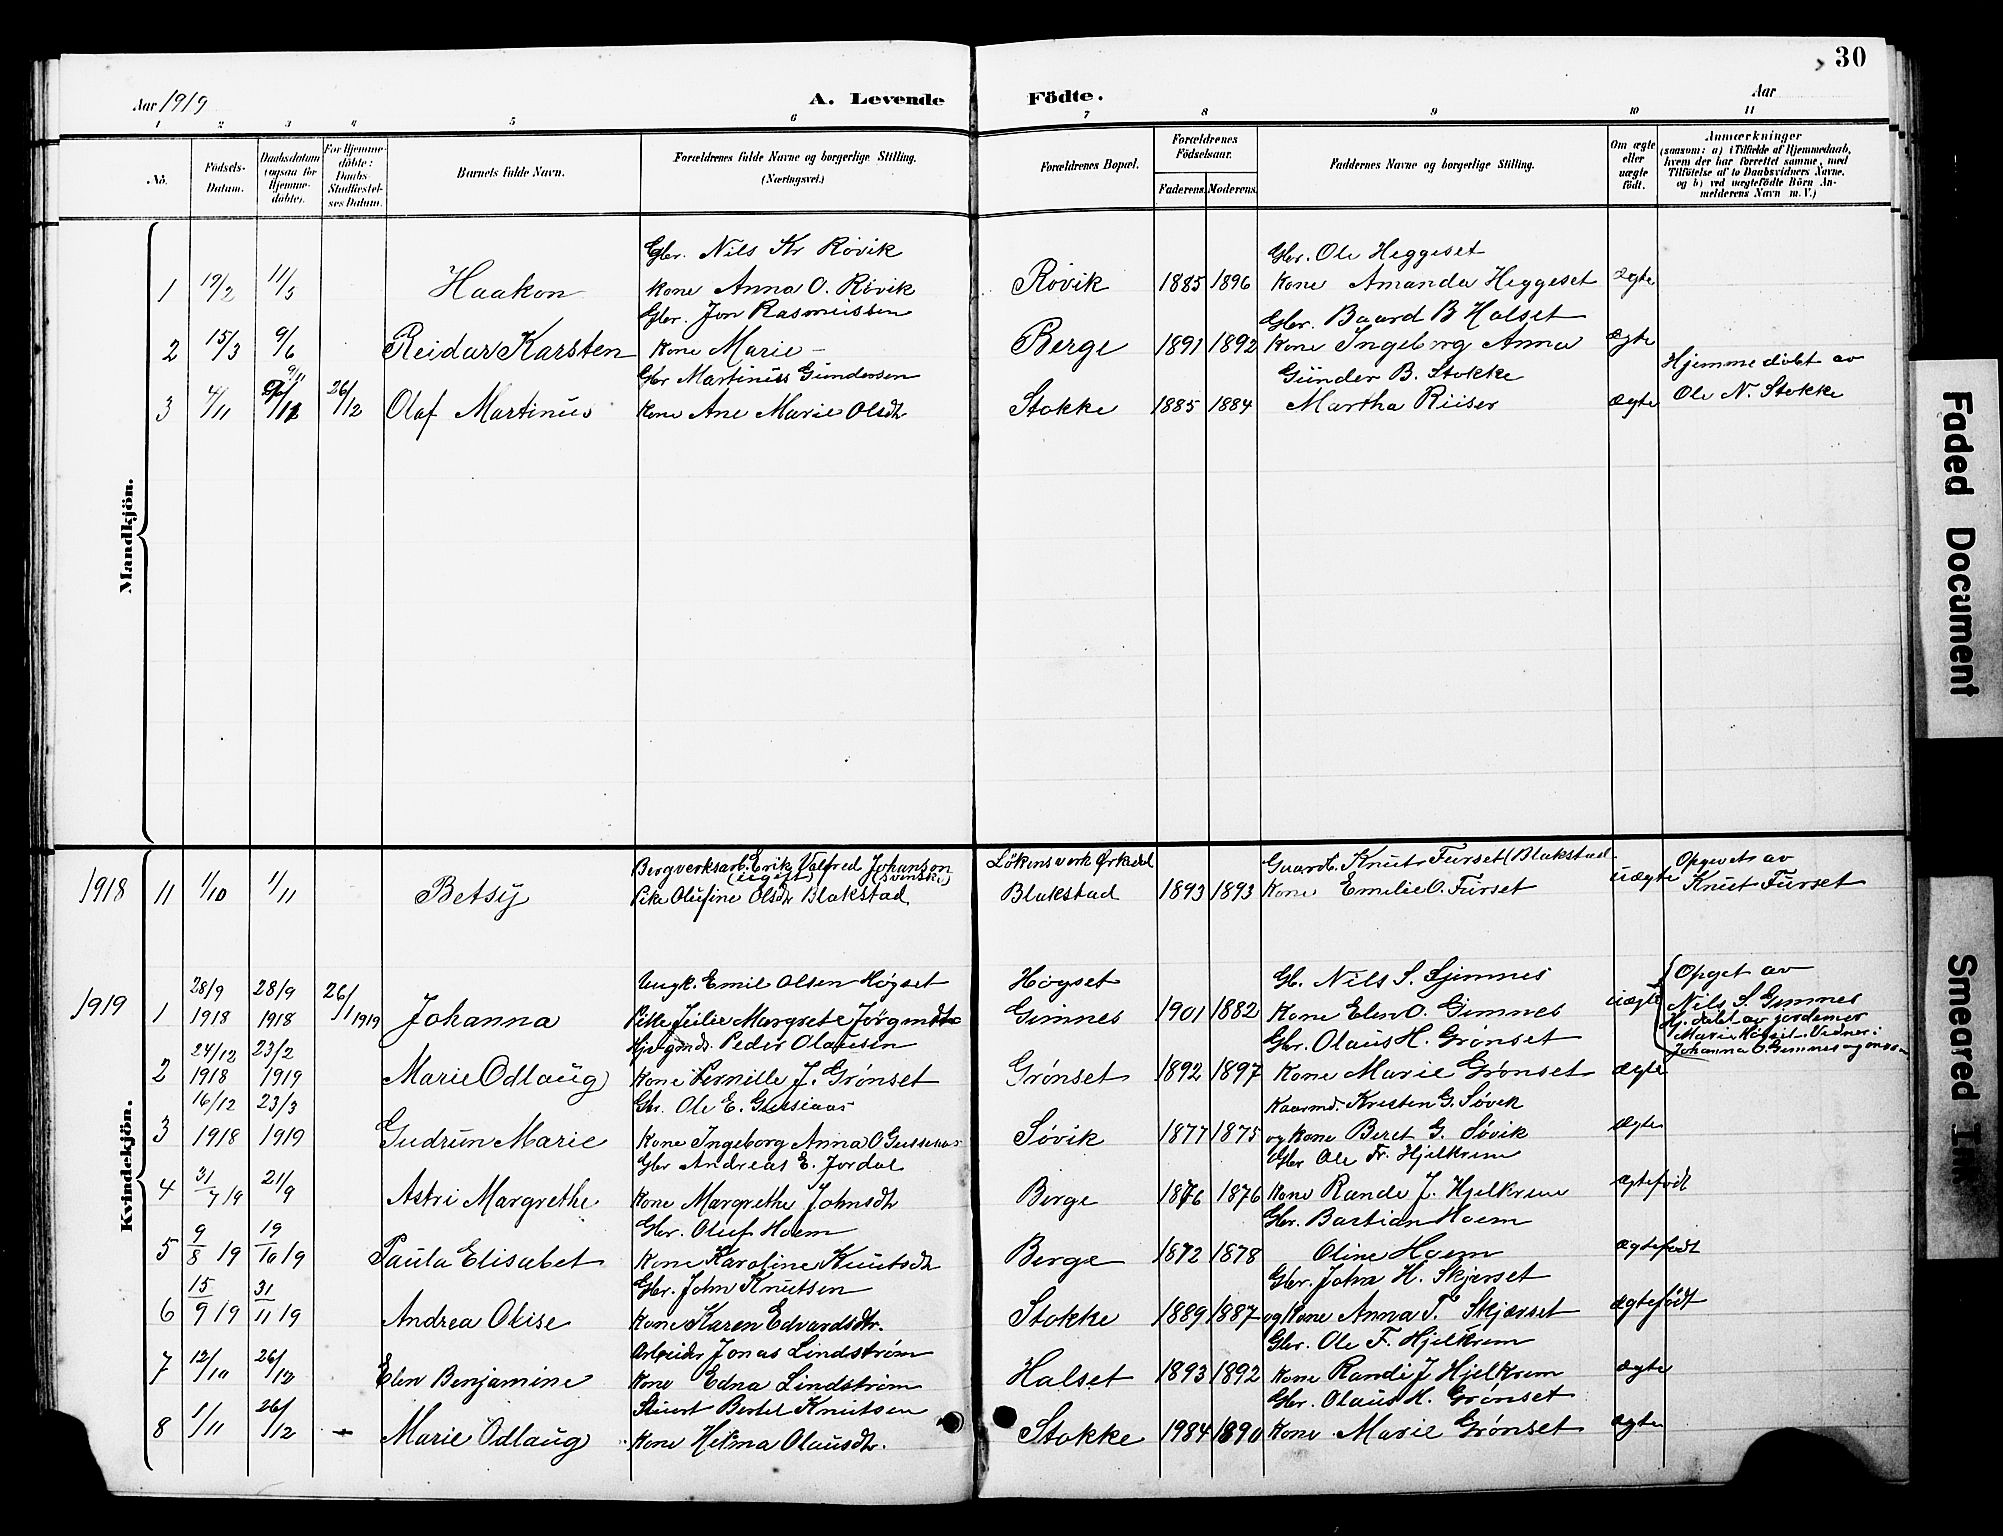 30
Aar 1919
A. Levende Födte.
Aar
1 2 3 4 5 6 7 8 9 10 11
No.
Födsels-Datum.
Daabsdatum (ogsaa for Hjemme-döbte).
For Hjemme-döbte: Daabs-Stadfæstel-ses Datum.
Barnets fulde Navn.
Forældrenes fulde Navne og borgerlige Stilling. (Næringsvei.)
Forældrenes Bopæl.
Forældrenes Födselsaar.
Faderens. Moderens.
Faddernes Navne og borgerlige Stilling.
Om ægte eller uægte födt.
Anmærkninger
(saasom: a) i Tilfælde af Hjemmedaab, hvem der har forrettet samme, med Tilföielse af to Daabsvidners Navne, og b) ved uægtefödte Börn An-melderens Navn m. V.)
Mandkjön.
Gbr. Nils Kr Røvik Gbr. Ole Heggeset
1 19/2 11/5 Haakon Kone Anna O. Røvik Røvik 1885 1896 Kone Amanda Heggeset ægte
Gbr. Jon Rasmussen Gbr. Baard B Halset
2 15/3 9/6 Reidar Karsten Kone Marie – Berge 1891 1892 Kone Ingeborg Anna ægte
9/11 Gbr Martinus Gundersen Gunder B. Stokke Hjemmedøbt av
3 4/11 26/12 Olaf Martinus Kone Ane Marie Olsdtr Stokke 1885 1884 Martha Riiser ægte Ole N. Stokke
Kvindekjön.
Bergverksarb. Erik Valfred Johanson Løkensverk Ørkedal Gaardb. Knut Furset (Blakstad. Opgevet av
(ugift) (svenske)
1918 11 1/10 1/11 Betsy Pike Olufine Olsdtr Blakstad Blakstad 1893 1893 Kone Emelie O. Furset uægte Knut Furset
28/9 28/9 26/1 Ungk. Emil Olsen Høgset Høgset Gb. Nils S. Gjimnes Opget av
1919 1 1918 1918 1919 Johanna Pike Julie Margrete Jørgmdtr Gimnes 1901 1882 Kone Elen O. Gimnes uægte Nils S. Gimnes
Hj. døbt av jordemor
24/12 23/2 Peder Olausen Gbr. Olaus H. Grønset Marie Høgset Vidner:
Johanna O. Gimnes og
2 1918 1919 Marie Odlaug Kone Pernille J. Grønset Grønset 1892 1897 Kone Marie Grønset ægte
16/12 23/3 Gbr. Ole E. Gussiaas Kaarmd. Kristen G. Søvik
3 1918 1919 Gudrun Marie Kone Ingeborg Anna O Gussiaas Søvik 1877 1875 og Kone Beret G. Søvik ægte
Gbr Andreas E. Jordal Gbr Ole Fr. Hjelkrem
4 31/7 19 21/9 Astri Margrethe Kone Margrethe Johnsdtr Berge 1876 1876 Kone Rande J. Hjelkrem ægtefødt
Gbr. Oluf Hoem Gbr. Bastian Hoem
5 9/8 19 19/10 19 Paula Elisabet Kone Karoline Knutsdtr Berge 1872 1878 Oline Hoem ægtefødt
Gbr. John Knutsen Gbr. John H. Skjerset
6 15/9 19 31/11 19 Andrea Olise Kone Karen Edvardsdtr. Stokke 1889 1887 og Kone Anna T. Skjærset ægtefødt
Arbeider Jonas Lindstrøm Gbr. Ole F. Hjelkrem
7 12/10 26/12 Elen Benjamine Kone Edna Lindstrøm Halset 1893 1892 Kone Randi J Hjelkrem ægte
Bertel Knutsen Gbr. Olaus H. Grønset
8 1/11 26/12 – Marie Odlaug Kone Helma Olausdtr. Stokke 1984 1890 Kone Marie Grønset ægte
Faded Document
Smeared Ink